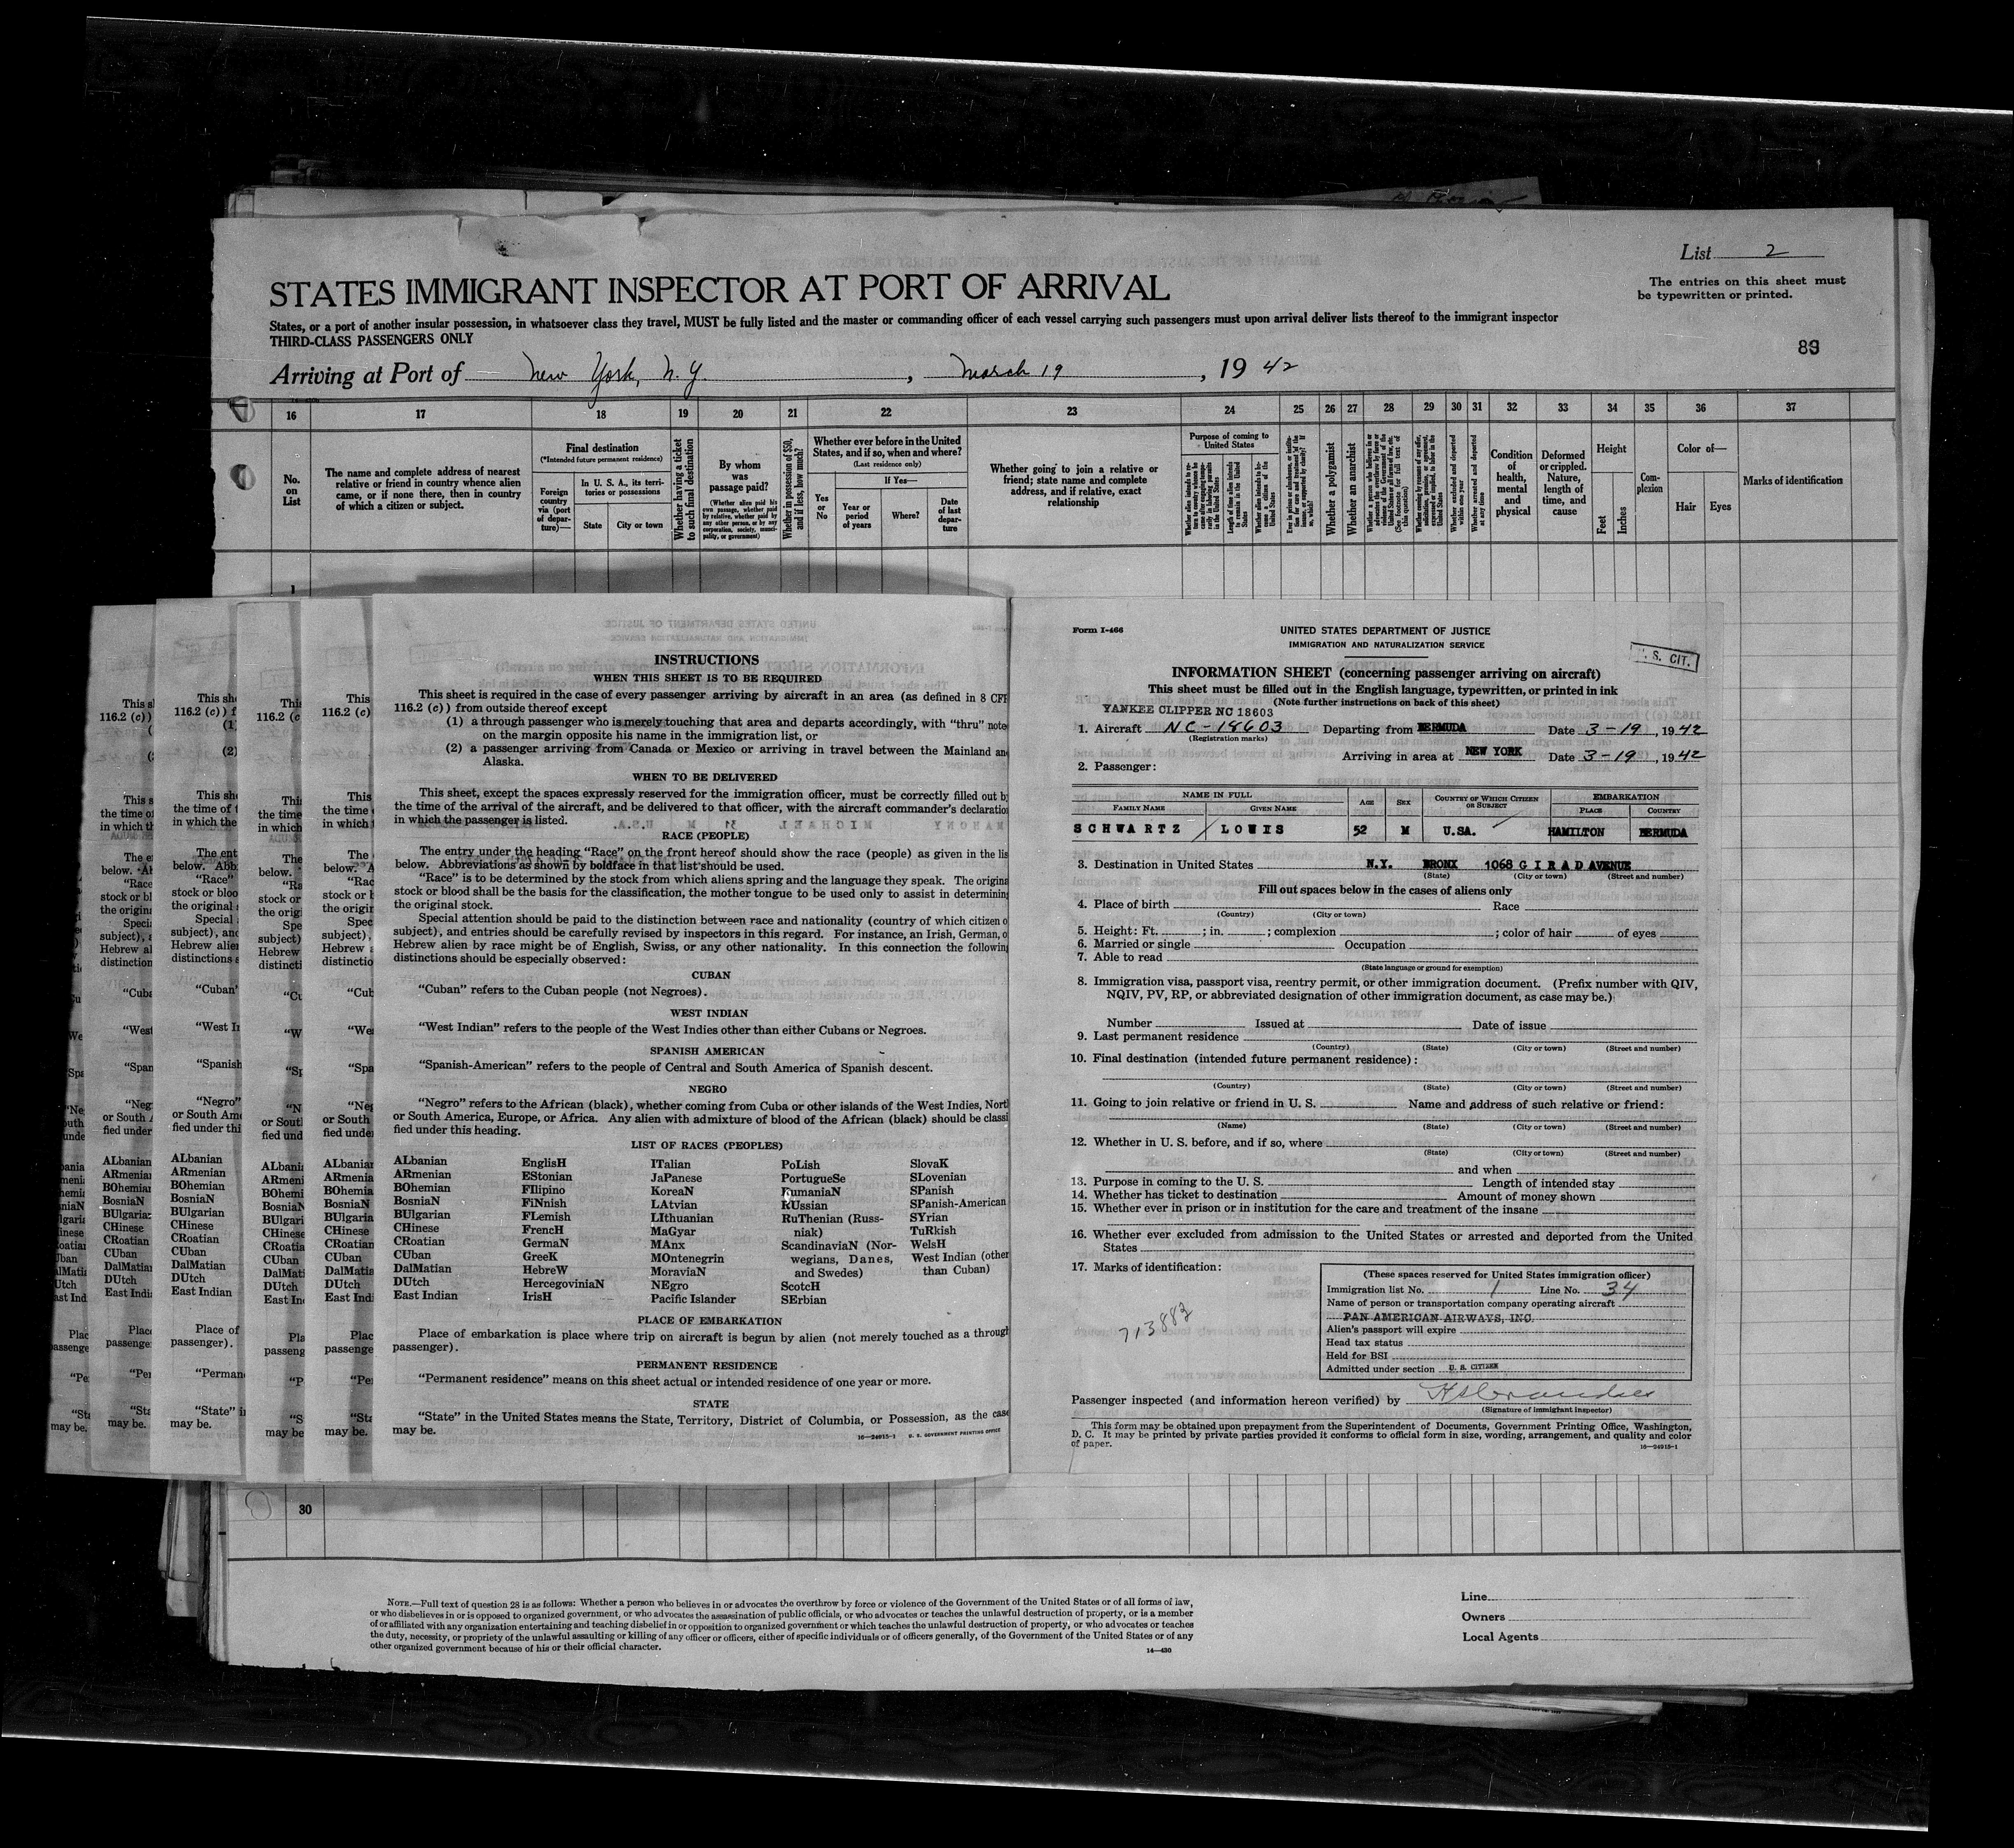 List 2
The entries on this sheet must
be typewritten or printed.
STATES IMMIGRANT INSPECTOR AT PORT OF ARRIVAL
States, or a port of another insular possession, in whatsoever class they travel, MUST be fully listed and the master or commanding officer of each vessel carrying such passengers must upon arrival deliver lists thereof to the immigrant inspector
THIRD-CLASS PASSENGERS ONLY
89
Arriving at Port of New York, N.Y., March 19, 1942
16 17 18 19 20 21 22 23 24 25 26 27 28 29 30 31 32 33 34 35 36 37
No. on List
The name and complete address of nearest
relative or friend in country whence alien
came, or if none there, then in country
of which a citizen or subject.
Final destination
(*Intended future permanent residence)
Foreign country via (port of departure)—
In U. S. A., its territories or possessions
State
City or town
Whether having a ticket to such final destination
By whom was passage paid?
(Whether alien paid his own passage, whether paid by relative, whether paid by any other person, or by any corporation, society, municipality, or government)
Whether in possession of $50, and if less, how much?
Whether ever before in the United
States, and if so, when and where?
(Last residence only)
Yes or No
If Yes—
Year or period of years
Where?
Date of last departure
Whether going to join a relative or
friend; state name and complete
address, and if relative, exact
relationship
Purpose of coming to
United States
Whether a polygamist
Whether an anarchist
Condition of health, mental and physical
Deformed or crippled. Nature, length of time, and cause
Height
Feet
Inches
Complexion
Color of—
Hair
Eyes
Marks of identification
1
INSTRUCTIONS
WHEN THIS SHEET IS TO BE REQUIRED
This sheet is required in the case of every passenger arriving by aircraft in an area (as defined in 8 CFR
116.2 (c)) from outside thereof except
(1) a through passenger who is merely touching that area and departs accordingly, with "thru" note
on the margin opposite his name in the immigration list, or
(2) a passenger arriving from Canada or Mexico or arriving in travel between the Mainland an
Alaska.
WHEN TO BE DELIVERED
This sheet, except the spaces expressly reserved for the immigration officer, must be correctly filled out b
the time of the arrival of the aircraft, and be delivered to that officer, with the aircraft commander's declaratio
in which the passenger is listed.
RACE (PEOPLE)
The entry under the heading "Race" on the front hereof should show the race (people) as given in the lis
below. Abbreviations as shown by boldface in that list should be used.
"Race" is to be determined by the stock from which aliens spring and the language they speak. The origina
stock or blood shall be the basis for the classification, the mother tongue to be used only to assist in determinin
the original stock.
Special attention should be paid to the distinction between race and nationality (country of which citizen o
subject), and entries should be carefully revised by inspectors in this regard. For instance, an Irish, German, o
Hebrew alien by race might be of English, Swiss, or any other nationality. In this connection the followin
distinctions should be especially observed:
CUBAN
"Cuban" refers to the Cuban people (not Negroes).
WEST INDIAN
"West Indian" refers to the people of the West Indies other than either Cubans or Negroes.
SPANISH AMERICAN
"Spanish-American" refers to the people of Central and South America of Spanish descent.
NEGRO
"Negro" refers to the African (black), whether coming from Cuba or other islands of the West Indies, Nort
or South America, Europe, or Africa. Any alien with admixture of blood of the African (black) should be classi
fied under this heading.
LIST OF RACES (PEOPLES)
ALbanian EnglisH ITalian PoLish SlovaK
ARmenian EStonian JaPanese PortugueSe SLovenian
BOhemian FIlipino KoreaN RumaniaN SPanish
BosniaN FiNnish LAtvian RUssian SPanish-American
BUlgarian FLemish LIthuanian RuThenian (Russ- SYrian
CHinese FrencH MaGyar niak) TuRkish
CRoatian GermaN MAnx ScandinaviaN (Nor- WelsH
CUban GreeK MOntenegrin wegians, Danes, West Indian (other
DalMatian HebreW MoraviaN and Swedes) than Cuban)
DUtch HercegoviniaN NEgro ScotcH
East Indian IrisH Pacific Islander SErbian
PLACE OF EMBARKATION
Place of embarkation is place where trip on aircraft is begun by alien (not merely touched as a throug
passenger).
PERMANENT RESIDENCE
"Permanent residence" means on this sheet actual or intended residence of one year or more.
STATE
"State" in the United States means the State, Territory, District of Columbia, or Possession, as the case
may be.
16—24915-1 U. S. GOVERNMENT PRINTING OFFICE
Form I-466
UNITED STATES DEPARTMENT OF JUSTICE
IMMIGRATION AND NATURALIZATION SERVICE
U. S. CIT.
INFORMATION SHEET (concerning passenger arriving on aircraft)
This sheet must be filled out in the English language, typewritten, or printed in ink
(Note further instructions on back of this sheet)
YANKEE CLIPPER NC 18603
1. Aircraft NC-18603 Departing from BERMUDA Date 3-19, 1942
(Registration marks)
Arriving in area at NEW YORK Date 3-19, 1942
2. Passenger:
NAME IN FULL AGE SEX COUNTRY OF WHICH CITIZEN OR SUBJECT EMBARKATION
FAMILY NAME GIVEN NAME PLACE COUNTRY
SCHWARTZ / LOUIS 52 M U.SA. HAMILTON BERMUDA
3. Destination in United States N.Y. BRONX 1068 GIRAD AVENUE
(State) (City or town) (Street and number)
Fill out spaces below in the cases of aliens only
4. Place of birth Race
(Country) (City or town)
5. Height: Ft. ; in. ; complexion ; color of hair of eyes
6. Married or single Occupation
7. Able to read
(State language or ground for exemption)
8. Immigration visa, passport visa, reentry permit, or other immigration document. (Prefix number with QIV,
NQIV, PV, RP, or abbreviated designation of other immigration document, as case may be.)
Number Issued at Date of issue
9. Last permanent residence
(Country) (State) (City or town) (Street and number)
10. Final destination (intended future permanent residence):
(Country) (State) (City or town) (Street and number)
11. Going to join relative or friend in U. S. Name and address of such relative or friend:
(Name) (State) (City or town) (Street and number)
12. Whether in U. S. before, and if so, where
(State) (City or town) (Street and number)
and when
13. Purpose in coming to the U. S. Length of intended stay
14. Whether has ticket to destination Amount of money shown
15. Whether ever in prison or in institution for the care and treatment of the insane
16. Whether ever excluded from admission to the United States or arrested and deported from the United
States
17. Marks of identification:
713882
(These spaces reserved for United States immigration officer)
Immigration list No. 1 Line No. 34
Name of person or transportation company operating aircraft
PAN AMERICAN AIRWAYS, INC.
Alien's passport will expire
Head tax status
Held for BSI
Admitted under section U. S. CITIZEN
Passenger inspected (and information hereon verified) by
(Signature of immigrant inspector)
This form may be obtained upon prepayment from the Superintendent of Documents, Government Printing Office, Washington,
D. C. It may be printed by private parties provided it conforms to official form in size, wording, arrangement, and quality and color
of paper.
16—24915-1
30
NOTE.—Full text of question 28 is as follows: Whether a person who believes in or advocates the overthrow by force or violence of the Government of the United States or of all forms of law,
or who disbelieves in or is opposed to organized government, or who advocates the assassination of public officials, or who advocates or teaches the unlawful destruction of property, or is a member
of or affiliated with any organization entertaining and teaching disbelief in or opposition to organized government or which teaches the unlawful destruction of property, or who advocates or teaches
the duty, necessity, or propriety of the unlawful assaulting or killing of any officer or officers, either of specific individuals or of officers generally, of the Government of the United States or of any
other organized government because of his or their official character.
14—430
Line
Owners
Local Agents